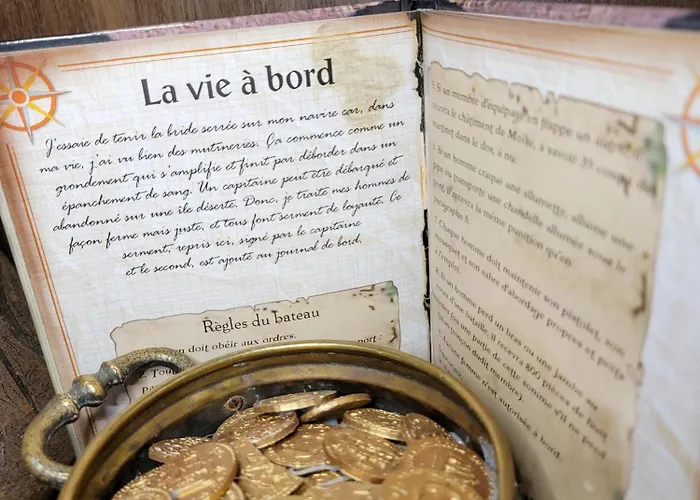 La vie à bord
J'essaie de tenir la bride serrée sur mon navire car, dans
ma vie, j'ai vu bien des mutineries. Ça commence comme un
grondement qui s'amplifie et finit par déborder dans un
épanchement de sang. Un capitaine peut être débarqué et
abandonné sur une île déserte. Donc, je traite mes hommes de
façon ferme mais juste, et tous font serment de loyauté. Ce
serment, repris ici, signé par le capitaine
et le second, est ajouté au journal de bord.
Règles du bateau
doit obéir aux ordres.
2. Tou
port :
Si un membre d'équipage en frappe un autre
le châtiment de Moïse, à savoir 39 coups de
dans le dos, à nu.
Si un homme craque une allumette, allume une
ou transporte une chandelle allumée sous le
pont, il recevra la même punition qu'en
paragraphe
Chaque homme doit maintenir son pistolet, son
mousquet et son sabre d'abordage propres et prêts
à l'emploi.
8. Si un homme perd un bras ou une jambe au
cours d'une bataille, il recevra 800 pièces de huit
(ou une partie de cette somme s'il ne perd
qu'un morceau dudit membre).
femme n'est autorisée à bord.